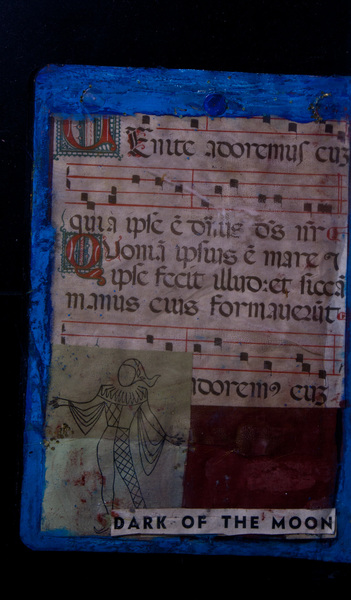 Venite adoremus euz
quia ipse ē dn̄us ds̄ nr̄
Quoniā ipsius ē mare
ipse fecit illud: et siccā
manus eius formaverūt
adoremꝰ euz
DARK OF THE MOON